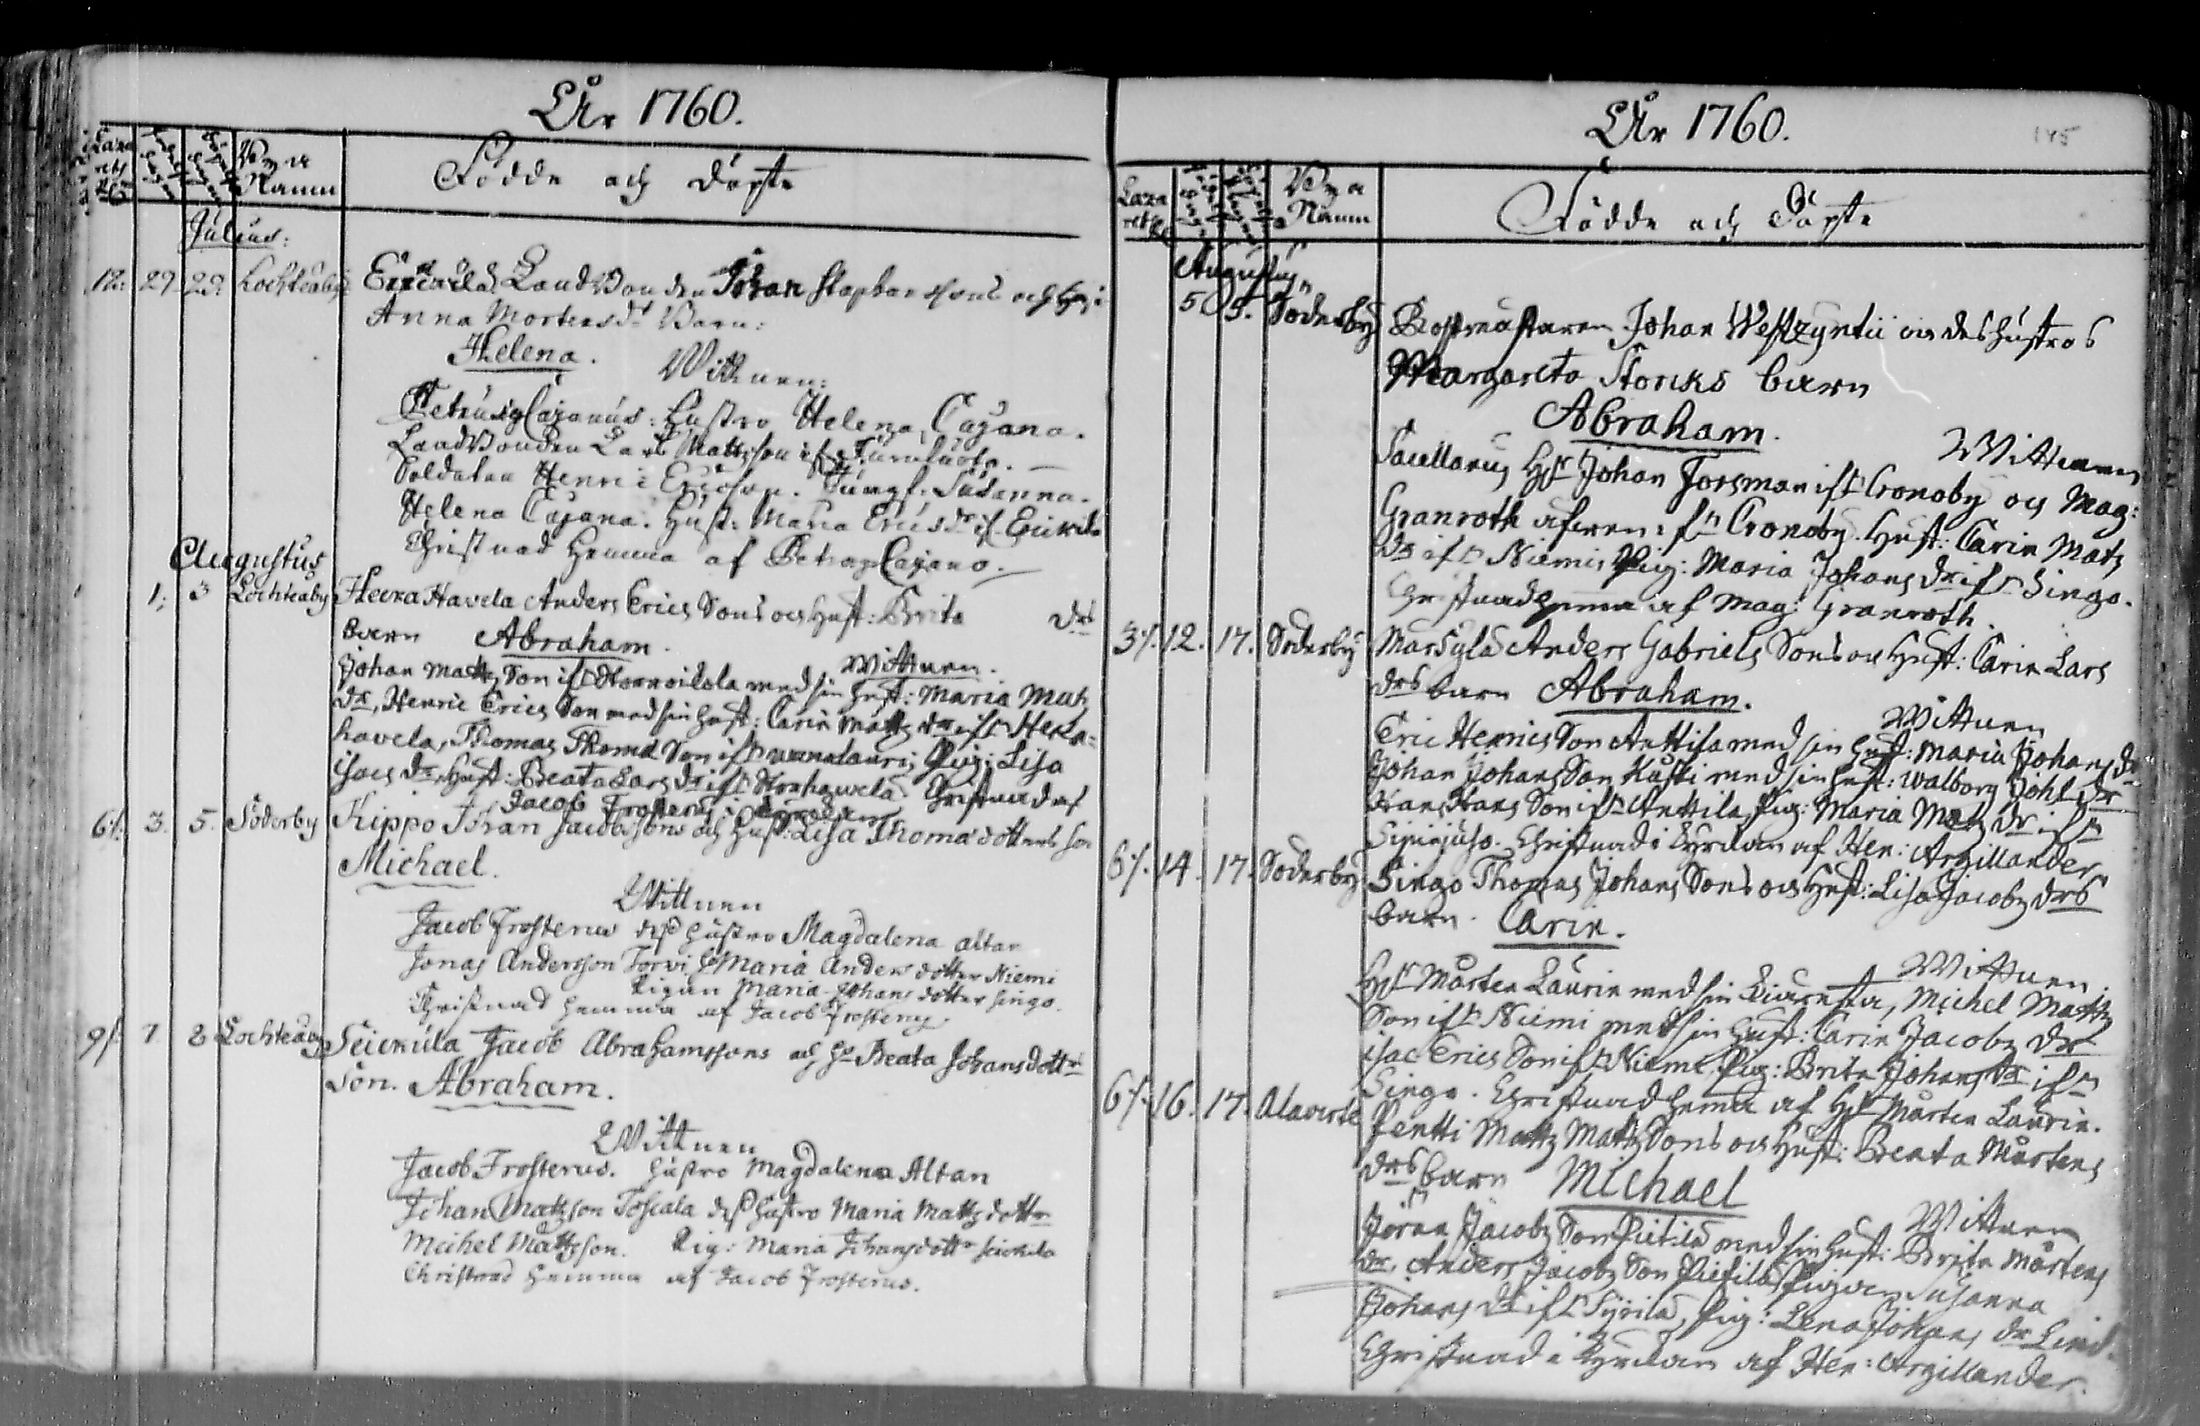 År 1760.
Lazarets
Bya Namn
Födde och Döpte
Julius:
12: 29. 29. Lochteåby Landbonden Johan Staphanssons och H:
Anna Mortensdr Barn:
Helena.
Wittnen:
Petrus Cajanus: Hustro Helena Cajana.
Landbonden Lars Mattsson
Soldaten Henric Ericsson. Jungf: Susanna.
Helena Cajana. Hust: Maria Ericsdr if Erikilä
Christnad hemma af Petrus Cajano.
Augustus
1. 3 Lochteåby Havela Anders Erics Sons och Hust: Brita drs
barn Abraham.
Wittnen.
Johan Matts Son med sin Hust: Maria Matts
dr, Henric Erics Son med sin Hust: Carin Matts dr ifr Hera=
havela, Thomas Thomæ Son ifr Pig: Lisa
isacs dr, Hust: Beata Lars dr ifr Christnad af
Jacob Frosterus i kyrckan
6/. 3. 5. Söderby Kippo Jöran Jacobssons och Hust: Lisa Thomædotters son
Michael.
Wittnen
Jacob Frosterus dess hustro Magdalena altan
Jonas Andersson Torvi H: Maria Andersdotter Niemi
Pigan Maria Johansdotter Singo.
Christnad hemma af Jacob Frosterus.
9/. 7 8 Lochteåby Seickula Jacob Abrahamssons och H: Beata Johansdottrs
Son. Abraham.
Wittnen
Jacob Frosterus. hustro Magdalena Altan
Johan Mattsson Toscala dess hustro Maria Mattsdotter
Michel Mattsson. Pig: Maria Johansdottr Seickula
Christnad hemma af Jacob Frosterus.
År 1760.
145
Lazarets
Bya Namn
Födde och Döpte
Augustus
5 5. Söderby Johan Westzyntii och des hustros
Margareta Storcks barn
Abraham.
Wittnen
Sacellanus Hr Johan Forsman ifr Cronoby och Mag:
Granroth ifr Cronoby. Hust: Carin Matts
dr ifr Niemi, Pig: Maria Johans dr ifr Singo.
Christnad hemma af Mag: Granroth.
3/. 12. 17. Söderby Marsylä Anders Gabriels Sons och Hust: Carin Lars
drs barn Abraham.
Wittnen
Eric Henrics Son Anttila med sin Hust: Maria Johans dr
Johan Johans Son Huski med sin Hust: Walborg Joh: dr
Hans Hans Son ifr Anttila, Pig: Maria Matts dr ifr
Christnad i kyrckan af Hen: Argillander.
6/. 14. 17. Söderby Singo Thomas Johans Sons och Hust: Lisa Jacobs drs
barn. Carin.
Wittnen.
Hr Mårten Laurin med sin Kiäresta, Michel Matts
Son ifr Niemi med sin Hust: Carin Jacobs dr
isac Erics Son ifr Niemi, Pig: Brita Johans dr ifr
Singo. Christnad hemma af Hr Mårten Laurin.
6/. 16. 17. Alaviste Pentti Matts Matts Sons och Hust: Beata Mårtens
drs barn Michael
Wittnen
Jöran Jacobs Son Pietilä med sin Hust: Brita Mårtens
dr, Anders Jacobs Son Pietilä, Pigan Susanna
Johans dr ifr Syrilä, Pig: Lena Johans dr Lind.
Christnad i kyrckan af Hen: Argillander.